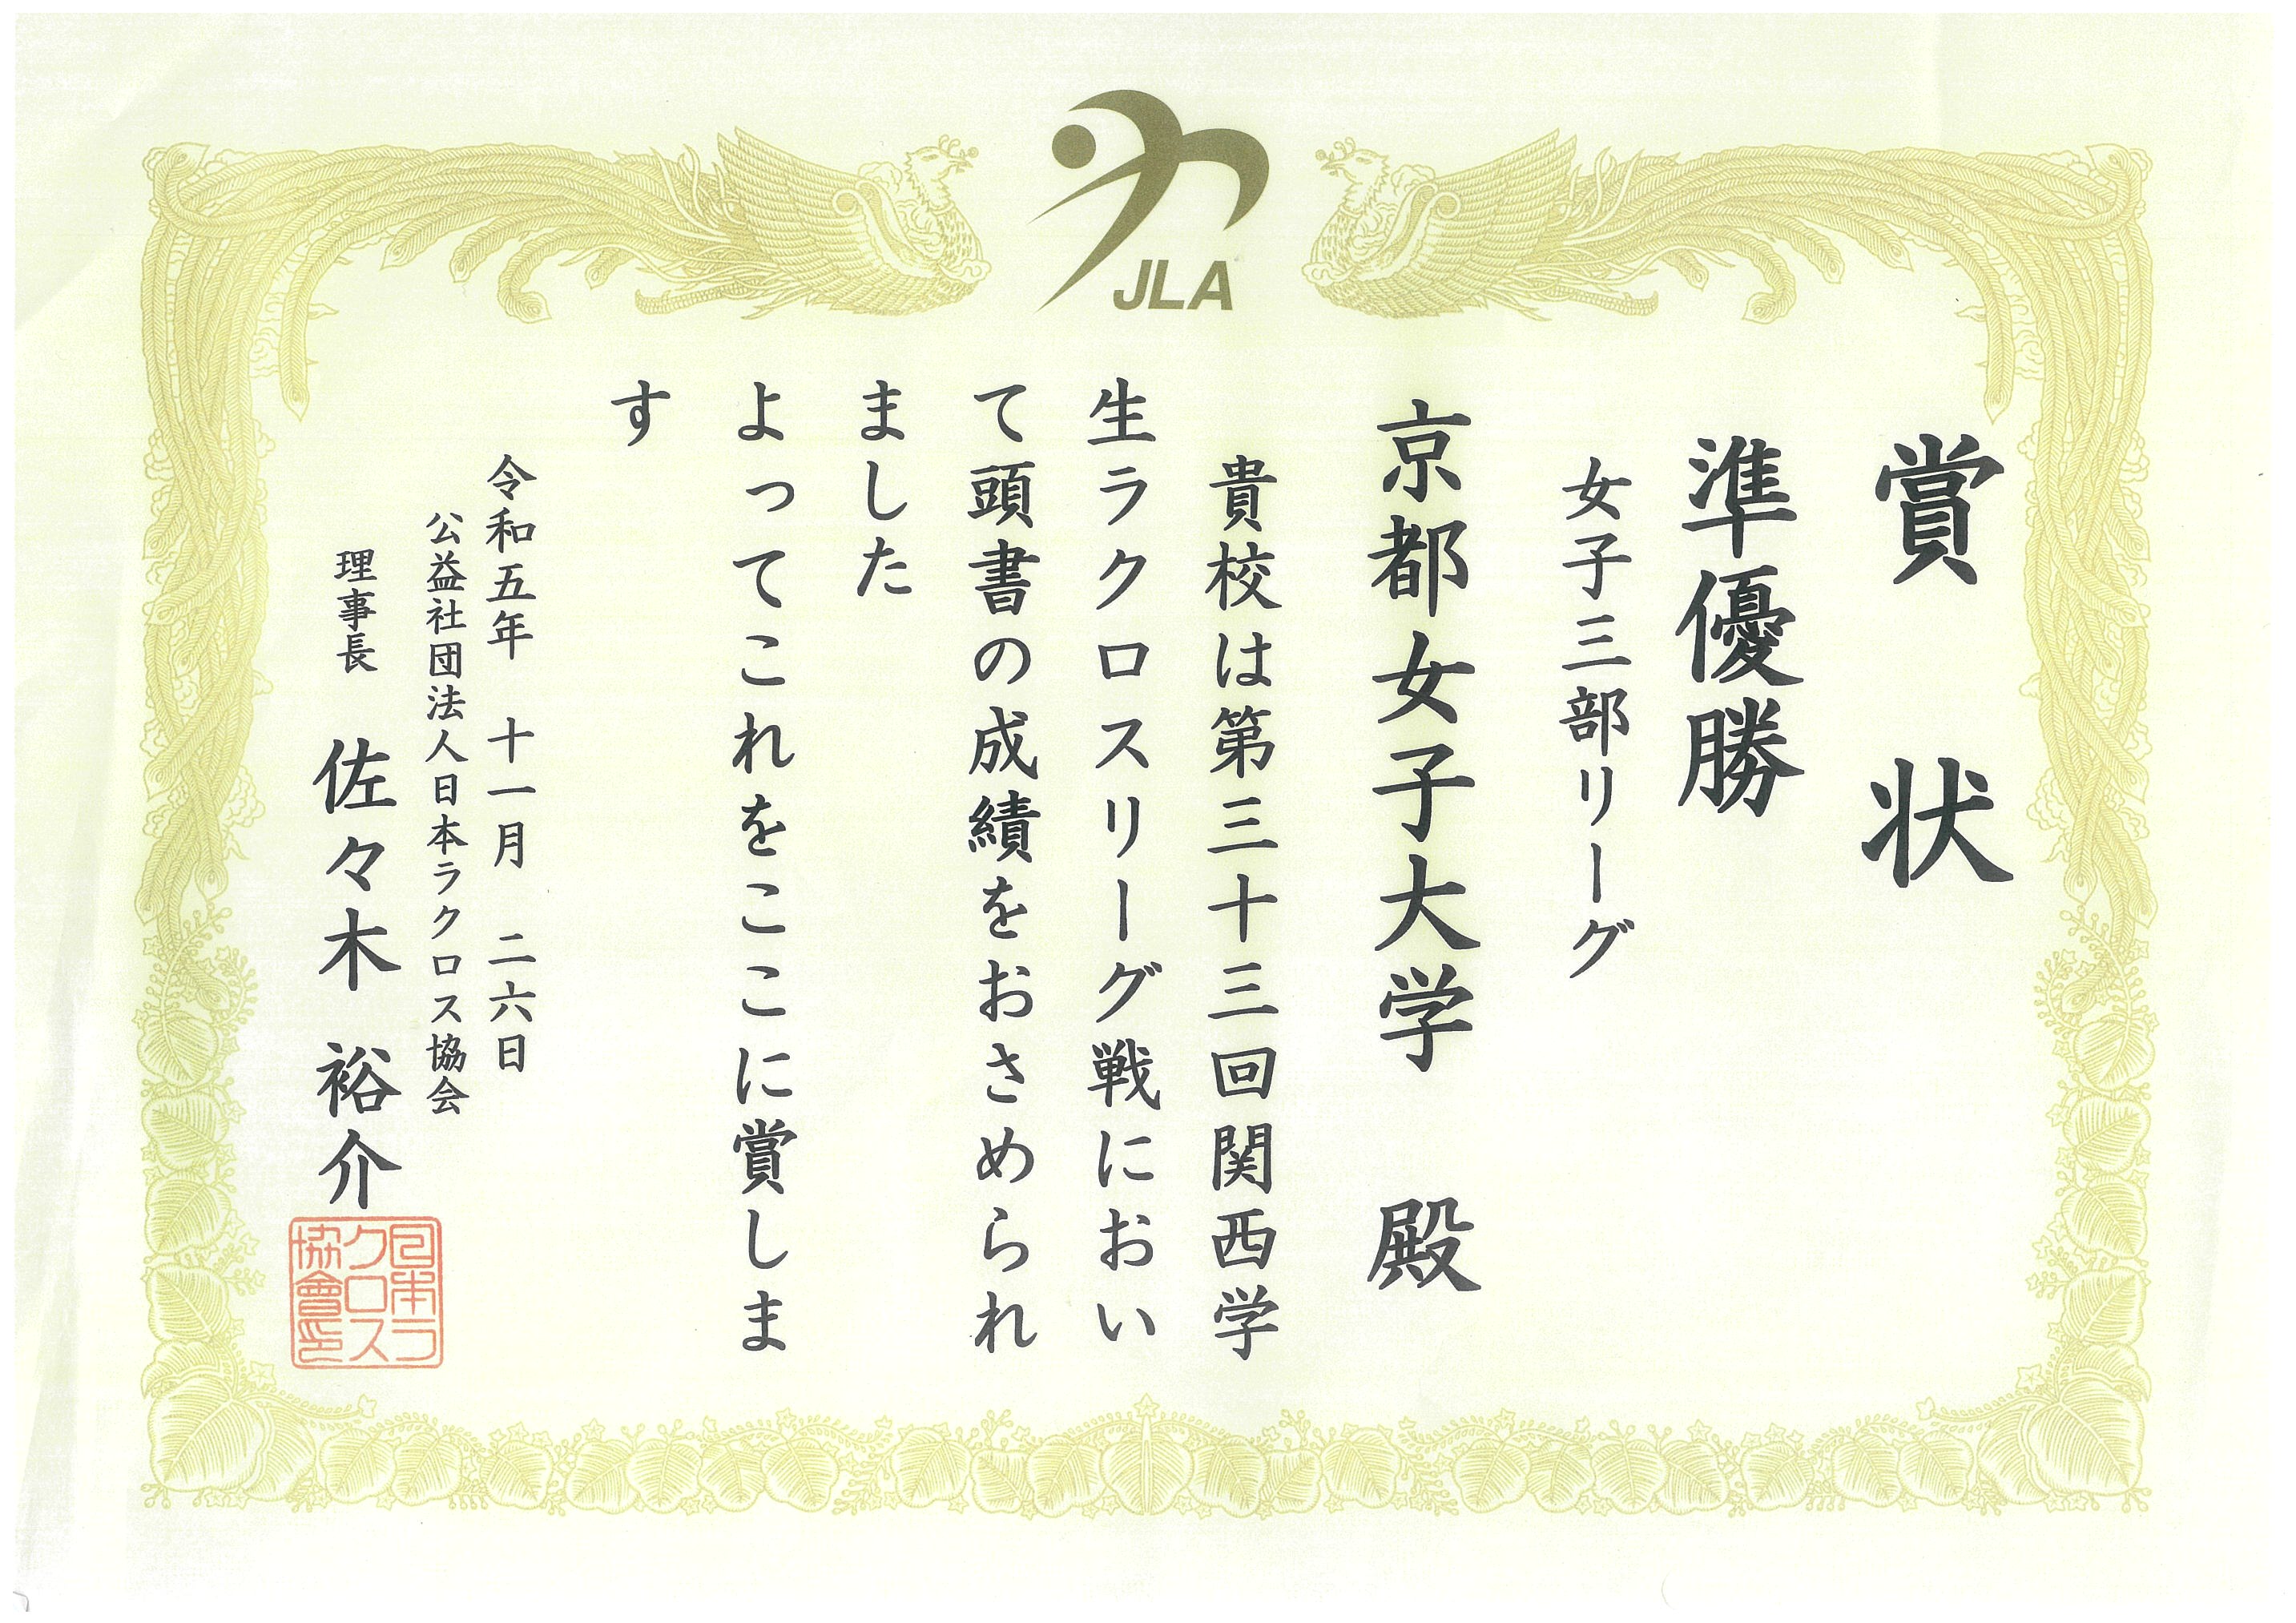 JLA
賞状
準優勝
女子三部リーグ
京都女子大学 殿
貴校は第三十三回関西学
生ラクロスリーグ戦におい
て頭書の成績をおさめられ
ました
よってこれをここに賞しま
す
令和五年 十一月 二六日
公益社団法人日本ラクロス協会
理事長 佐々木 裕介
日本ラ
クロス
協會印